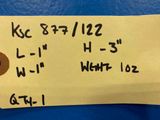 KSC 877/122
L-1" H-3"
W-1" WGHT 1oz
QTY-1